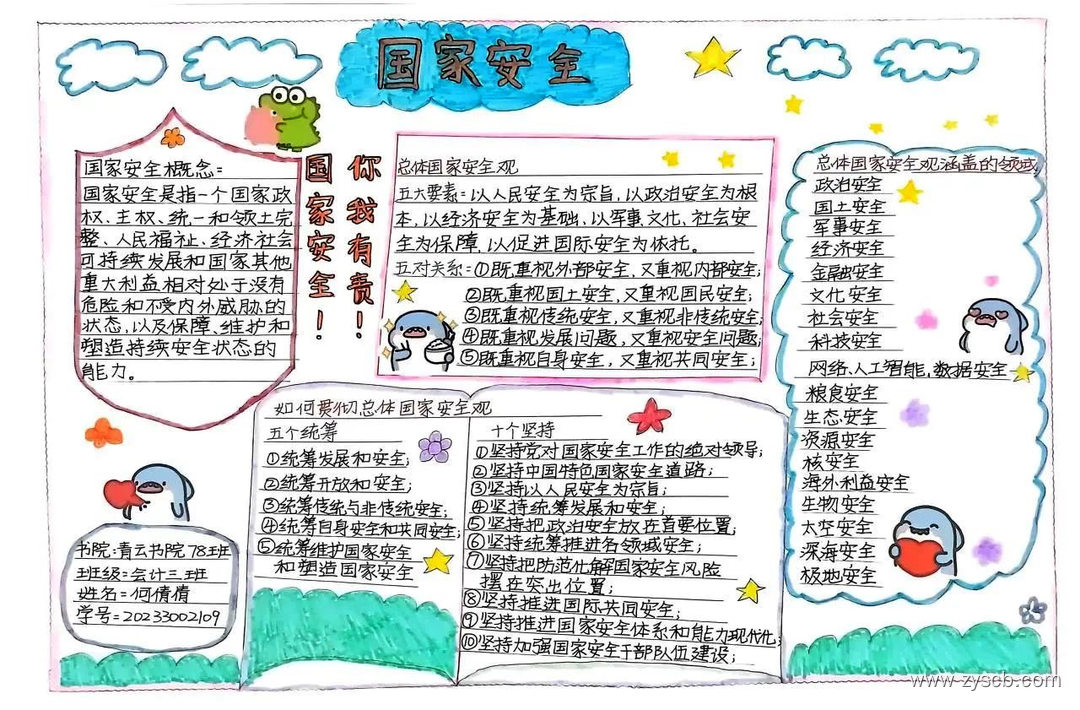 国家安全
国家安全概念:
国家安全是指一个国家政
权、主权、统一和领土完
整、人民福祉、经济社会
可持续发展和国家其他
重大利益相对处于没有
危险和不受内外威胁的
状态,以及保障、维护和
塑造持续安全状态的
能力。
你我有责!
国家安全!
总体国家安全观
五大要素:以人民安全为宗旨,以政治安全为根
本,以经济安全为基础,以军事文化、社会安
全为保障,以促进国际安全为依托。
五对关系:①既重视外部安全、又重视内部安全;
②既重视国土安全,又重视国民安全;
③既重视传统安全,又重视非传统安全;
④既重视发展问题,又重视安全问题;
⑤既重视自身安全,又重视共同安全;
总体国家安全观涵盖的领域:
政治安全
国土安全
军事安全
经济安全
金融安全
文化安全
社会安全
科技安全
网络、人工智能,数据安全
粮食安全
生态安全
资源安全
核安全
海外利益安全
生物安全
太空安全
深海安全
极地安全
如何贯彻总体国家安全观
五个统筹
①统筹发展和安全;
②统筹开放和安全;
③统筹传统与非传统安全;
④统筹自身安全和共同安全;
⑤统筹维护国家安全
和塑造国家安全
十个坚持
①坚持党对国家安全工作的绝对领导;
②坚持中国特色国家安全道路;
③坚持以人民安全为宗旨;
④坚持统筹发展和安全;
⑤坚持把政治安全放在首要位置;
⑥坚持统筹推进各领域安全;
⑦坚持把防范化解国家安全风险
摆在突出位置;
⑧坚持推进国际共同安全;
⑨坚持推进国家安全体系和能力现代化;
⑩坚持加强国家安全干部队伍建设;
书院:青云书院78班
班级:会计三班
姓名:何倩倩
学号:20233002109
www.zyscb.com